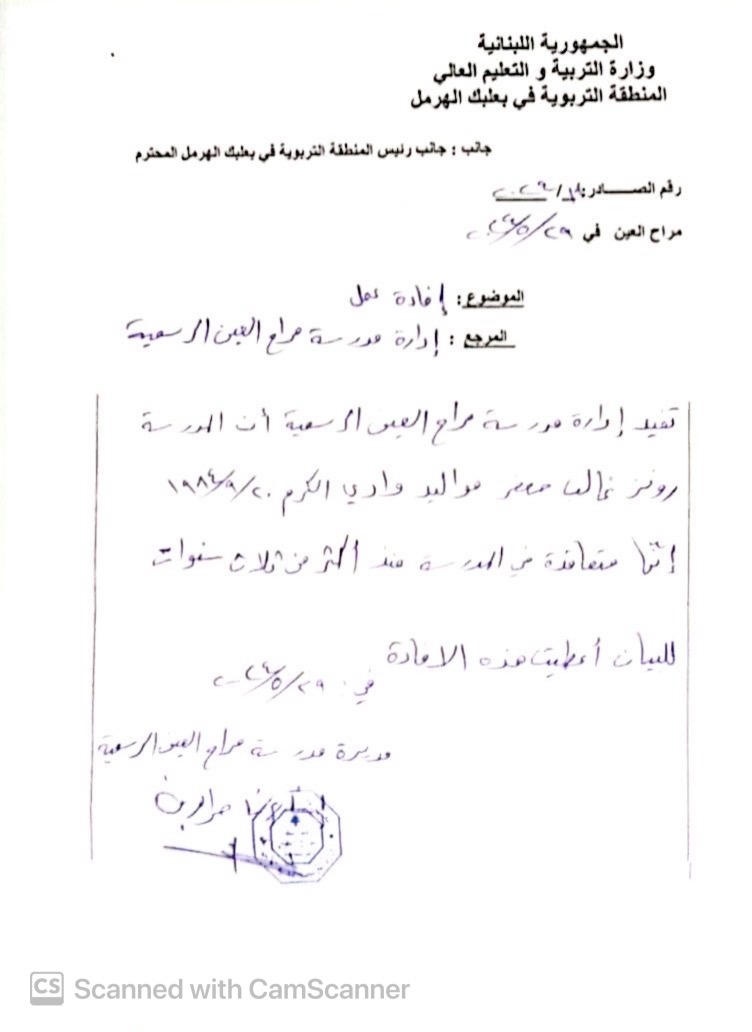 الجمهورية اللبنانية
وزارة التربية و التعليم العالي
المنطقة التربوية في بعلبك الهرمل
جانب : جانب رئيس المنطقة التربوية في بعلبك الهرمل المحترم
رقم الصـــــادر:
مراح العين في ٢٠٢٤/٥/٢٩
الموضوع: إفادة عمل
المرجع : إدارة مدرسة مراح العين الرسمية
تفيد إدارة مدرسة مراح العين الرسمية أن المدرسة
غالب جعفر مواليد وادي الكرم ١٩٨٤/٩/٢٠
إنّها متعاقدة في المدرسة منذ أكثر من ثلاث سنوات
للبيان أعطيت هذه الافادة
في: ٢٠٢٤/٥/٢٩
مديرة مدرسة مراح العين الرسمية
CS Scanned with CamScanner